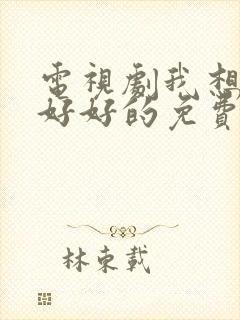 電視劇我想
好好的免費
林束載